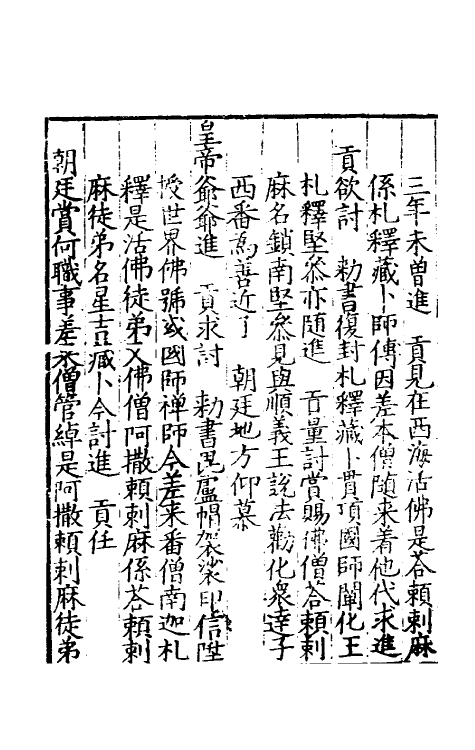 三年未曾進　貢見在西海活佛是荅頼剌麻
係札釋藏卜師傅因差本僧随来着他代求進
貢欲討　勑書復封札釋藏卜貫頂國師闡化王
札釋堅叅亦随進　貢量討賞賜佛僧荅頼剌
麻名鎖南堅叅見與順義王說法勸化衆達子
西番爲善近了　朝廷地方仰慕
皇帝爺爺進　貢求討　勑書毘盧帽袈裟印信陞
授世界佛號或國師禅師今差来番僧南迦札
釋是活佛徒弟又佛僧阿撒頼剌麻係荅頼剌
麻徒弟名星吉臧卜今討進　貢任
朝廷賞何職事差来僧管綽是阿撒頼剌麻徒弟